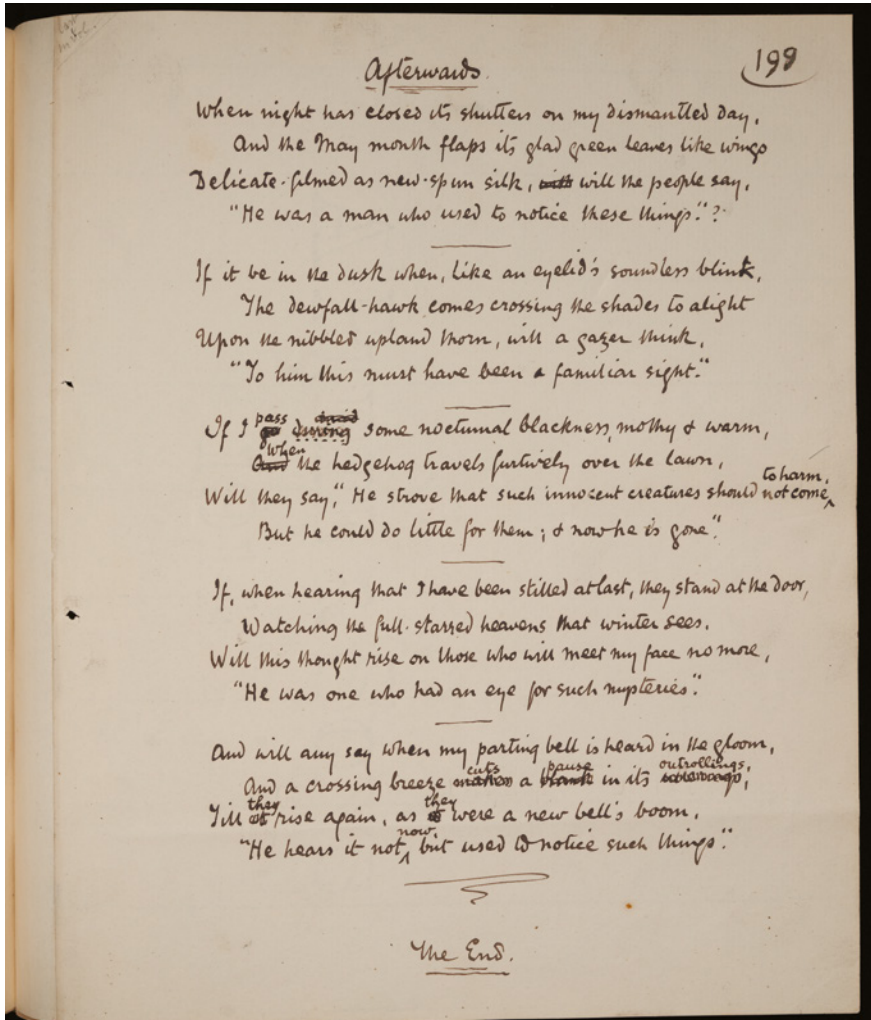 Afterwards.
199
When night has closed its shutters on my dismantled day,
And the May month flaps its glad green leaves like wings
Delicate-filmed as new-spun silk, will the people say,
"He was a man who used to notice these things."?
If it be in the dusk when, like an eyelid's soundless blink,
The dewfall-hawk comes crossing the shades to alight
Upon the nibbled upland thorn, will a gazer think,
"To him this must have been a familiar sight."
pass
If I during some nocturnal blackness, mothy & warm,
When
the hedgehog travels furtively over the lawn,
to harm,
Will they say, "He strove that such innocent creatures should not come
But he could do little for them; & now he is gone".
If, when hearing that I have been stilled at last, they stand at the door,
Watching the full-starred heavens that winter sees,
Will this thought rise on those who will meet my face no more,
"He was one who had an eye for such mysteries".
And will any say when my parting bell is heard in the gloom,
cuts pause outrollings,
And a crossing breeze makes a blank in its
they they
Till it rise again, as it were a new bell's boom,
now,
"He hears it not, but used to notice such things".
The End.